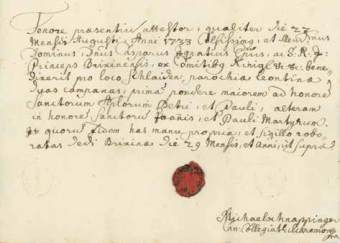 Tenore præsentiu attestor, qualiter die 22
Mensis Augusti Anni 1733 Celsissimus et Illmus
Dominus Dnus Asparus Ignatius Epus, ac S.R.J.
Princeps Brixinensis, ex Comitibg Künigl &c. &c. bene-
dixerit pro loco Schlaiden, parochia Leontina
duas campanas, prima pondere maiorem ad honore
Sanctorum Aplorum Petri, et Pauli, alteram
in honore Sanctoru Joanis, et Pauli Martyrum.
In quoru fidem has manu propria, et sigillo robo-
ratas dedi Brixina die 29 Mensis, et Anni, ut supra.
Michael Schnappinger